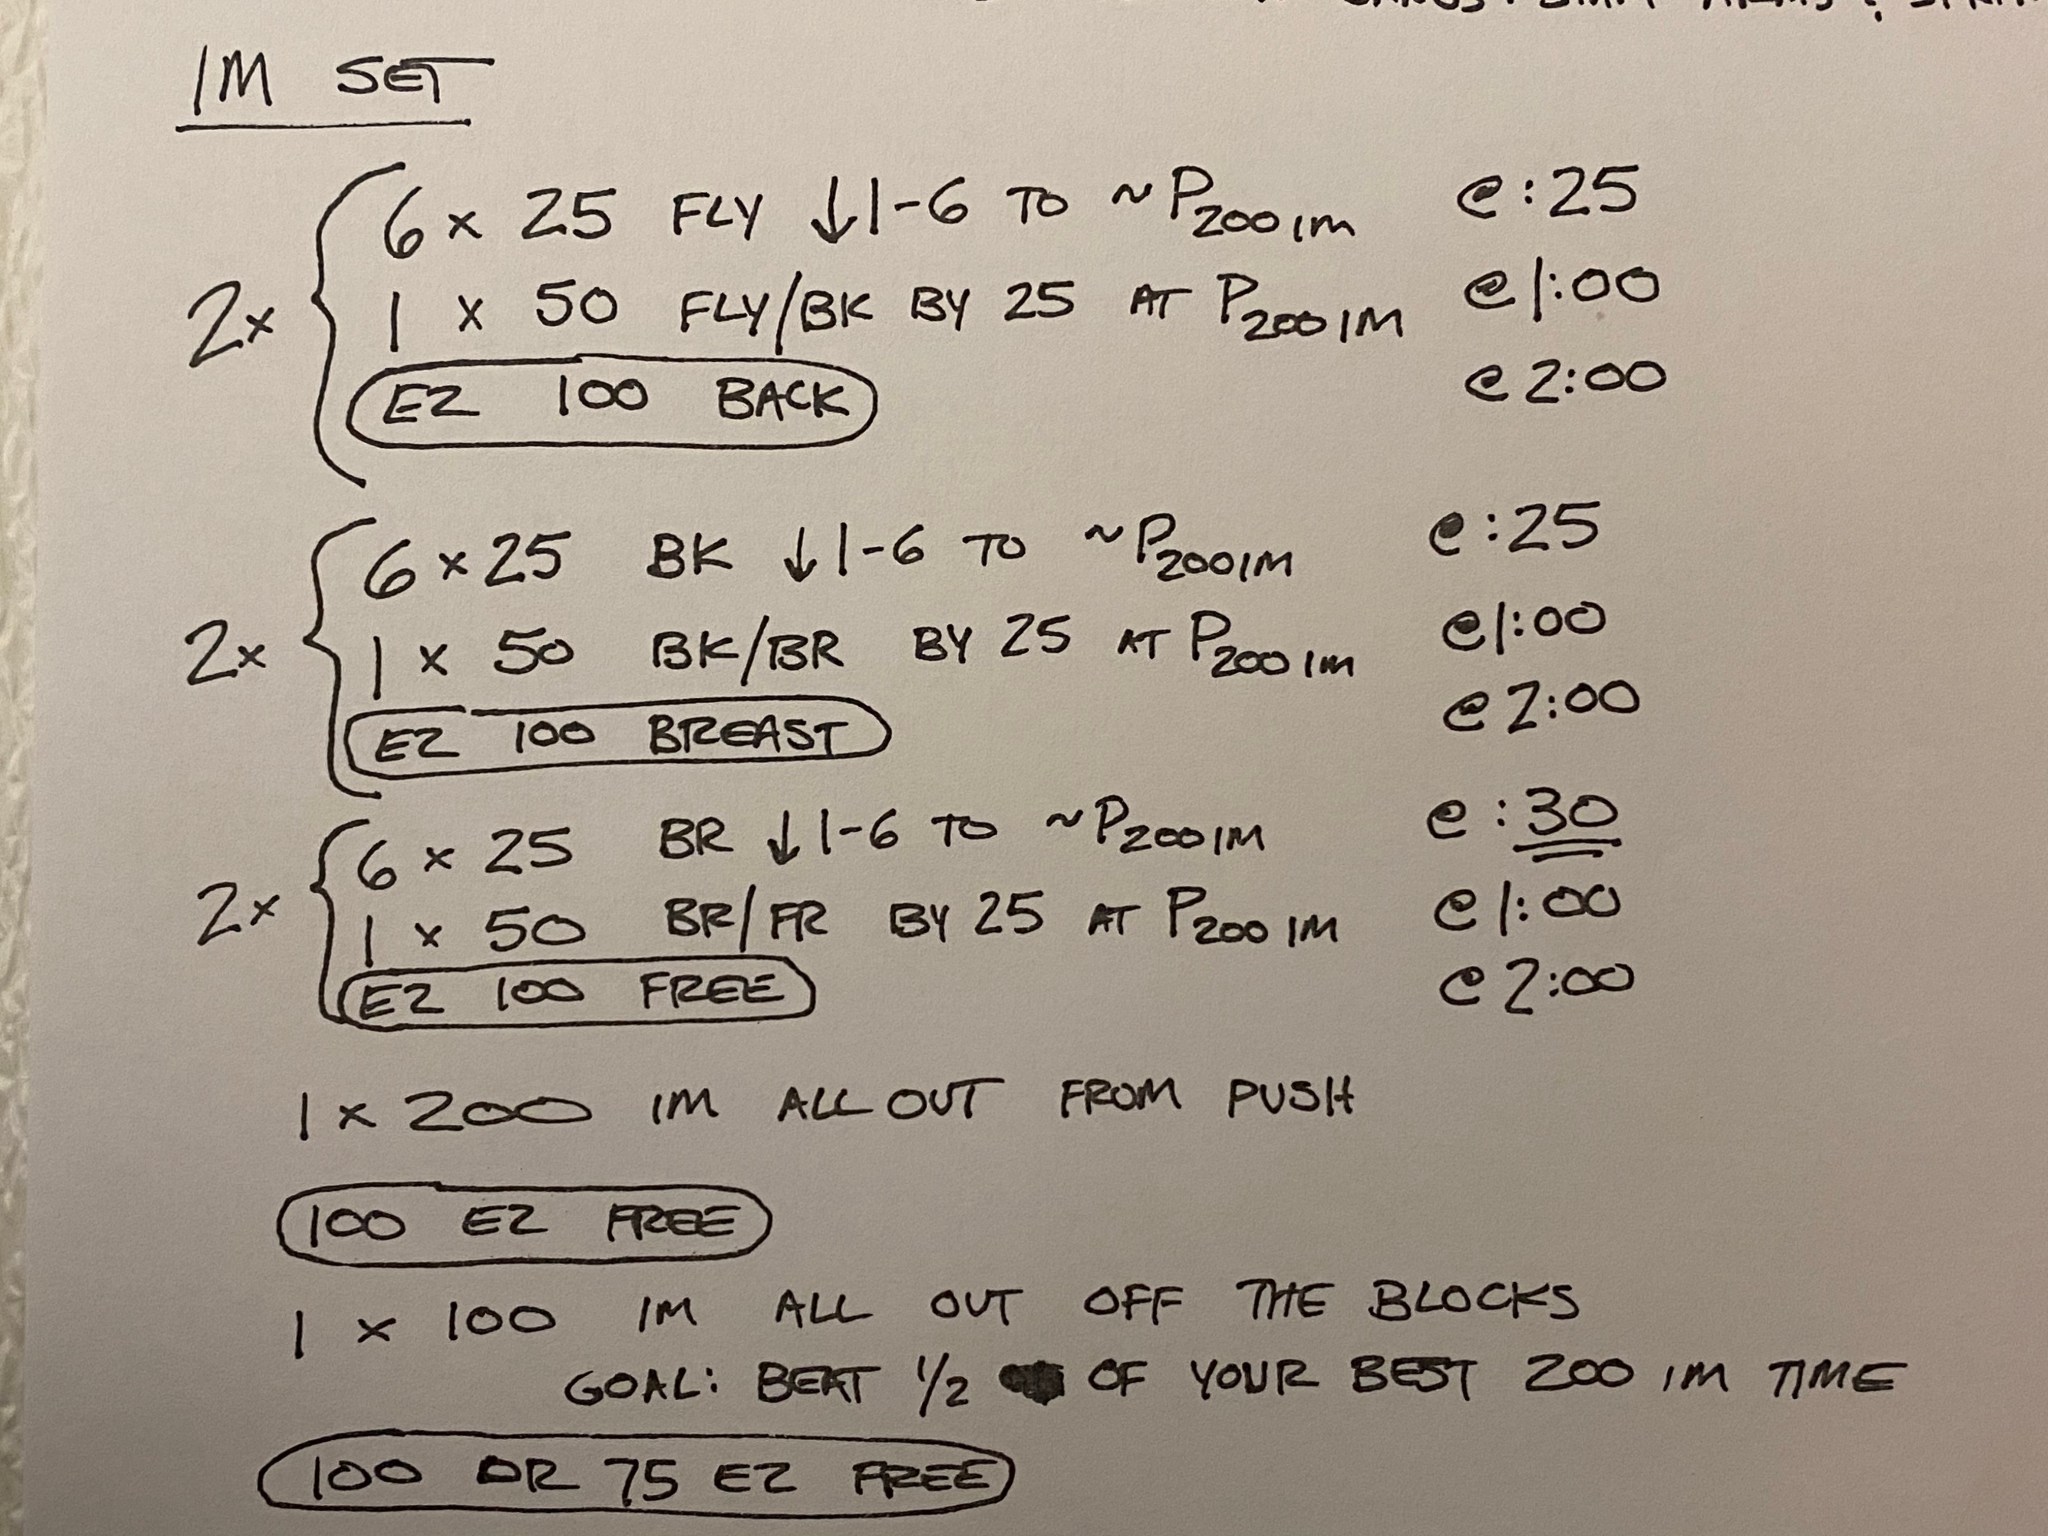 IM SET
2x
6 x 25 FLY ↓1-6 TO ~P200 IM @ :25
1 x 50 FLY/BK BY 25 AT P200 IM @ 1:00
EZ 100 BACK @ 2:00
2x
6 x 25 BK ↓1-6 TO ~P200 IM @ :25
1 x 50 BK/BR BY 25 AT P200 IM @ 1:00
EZ 100 BREAST @ 2:00
2x
6 x 25 BR ↓1-6 TO ~P200 IM @ :30
1 x 50 BR/FR BY 25 AT P200 IM @ 1:00
EZ 100 FREE @ 2:00
1 x 200 IM ALL OUT FROM PUSH
100 EZ FREE
1 x 100 IM ALL OUT OFF THE BLOCKS
GOAL: BEAT 1/2 OF YOUR BEST 200 IM TIME
100 OR 75 EZ FREE